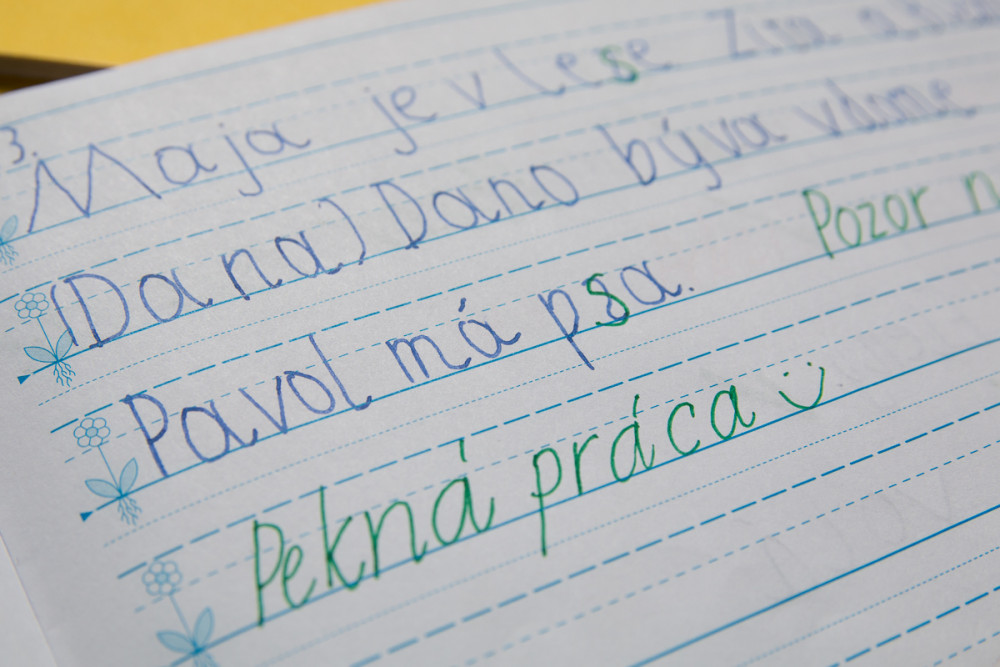 3.
Maja je v lese
(Dana) Dano býva v dome
Pavol má psa. Pozor n
Pekná práca